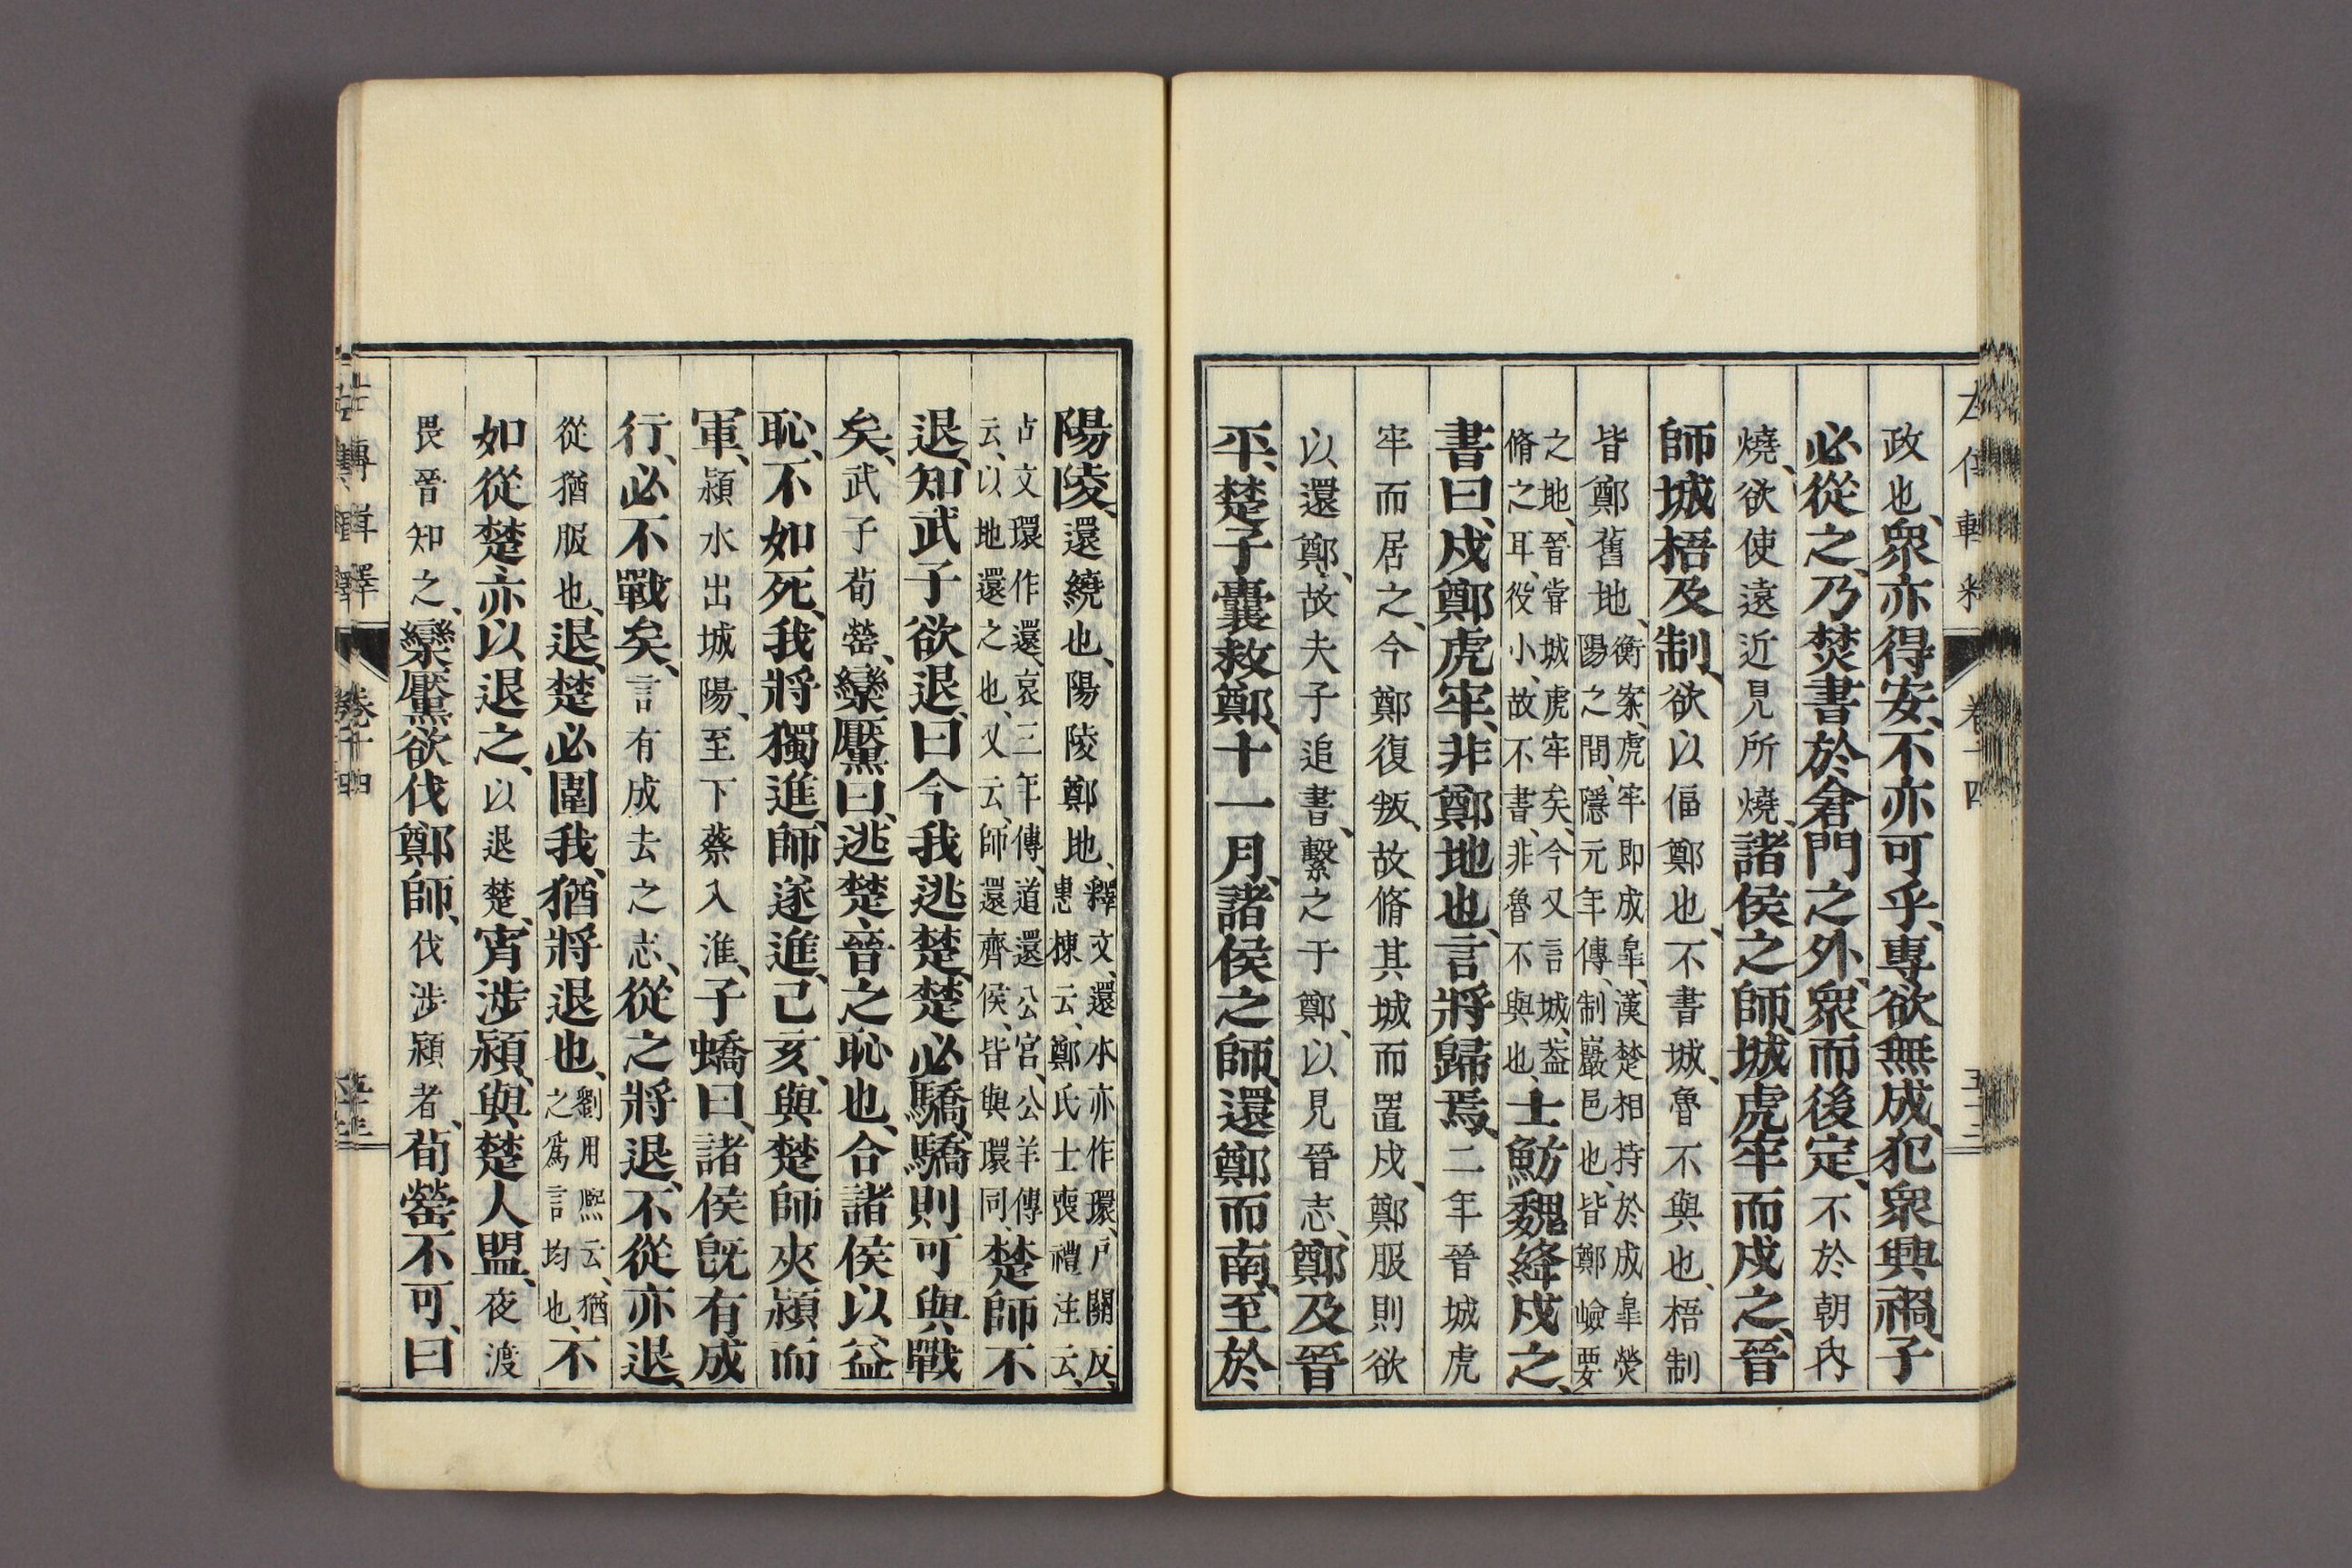 政也、衆亦得安、不亦可乎、專欲無成、犯衆興禍、子
必從之、乃焚書於倉門之外、衆而後定、不於朝內
燒、欲使遠近見所燒、諸侯之師、城虎牢而戍之、晉
師城梧及制、欲以偪鄭也、不書城、魯不與也、梧制
皆鄭舊地、衡案、虎牢即成皐、漢楚相持於成皐熒
陽之間、隱元年傳、制巖邑也、皆鄭嶮要
之地、晉嘗城虎牢矣、今又言城、葢
脩之耳、役小、故不書、非魯不與也、士魴魏絳戍之、
書曰、戍鄭虎牢、非鄭地也、言將歸焉、二年晉城虎
牢而居之、今鄭復叛、故脩其城而置戍、鄭服則欲
以還鄭、故夫子追書、繫之于鄭、以見晉志、鄭及晉
平、楚子囊救鄭、十一月、諸侯之師、還鄭而南、至於
陽陵、還繞也、陽陵鄭地、釋文、還本亦作環、戶關反、
惠棟云、鄭氏士喪禮注云、
古文環作還、哀三年傳、道還公宮、公羊傳
云、以地還之也、又云、師還齊侯、皆與環同、楚師不
退、知武子欲退、曰今我逃楚、楚必驕、驕則可與戰
矣、武子荀罃、欒黶曰、逃楚、晉之恥也、合諸侯以益
恥、不如死、我將獨進、師遂進、己亥、與楚師夾潁而
軍、潁水出城陽、至下蔡入淮、子蟜曰、諸侯旣有成
行、必不戰矣、言有成去之志、從之將退、不從亦退、
從猶服也、退、楚必圍我、猶將退也、劉用熙云、猶
之爲言均也、不
如從楚亦以退之、以退楚、宵涉潁、與楚人盟、夜渡
畏晉知之、欒黶欲伐鄭師、伐涉潁者、荀罃不可、曰
左傳輯釋 卷十四